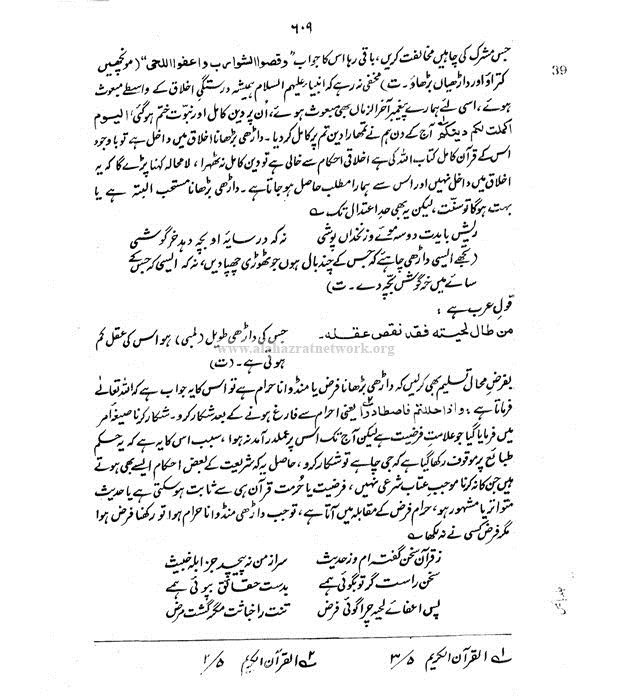 ۶۰۹
39
جس مشرک کی چاہیں مخالفت کریں، باقی رہا اس کا جواب "وقصوا الشوارب واعفوا اللحی" (مونچھیں
کتراؤ اور داڑھیاں بڑھاؤ۔ ت) مخفی نہ رہے کہ انبیاء علیہم السلام ہمیشہ درستگیِ اخلاق کے واسطے مبعوث
ہوئے، اسی لئے ہمارے پیغمبر آخر الزماں بھی مبعوث ہوئے، اُن پر دین کامل اور نبوت ختم ہوگئی الیوم
اکملت لکم دینکم آج کے دن ہم نے تمھارا دین تم پر کامل کردیا۔ داڑھی بڑھانا اخلاق میں داخل ہے تو باوجود
اس کے قرآن کامل کتاب اللہ کی ہے اخلاقی احکام سے خالی ہے تو دین کامل نہ ٹھہرا، لامحالہ کہنا پڑے گا کہ یہ
اخلاق میں داخل نہیں اور اس سے ہمارا مطلب حاصل ہوجاتا ہے۔ داڑھی بڑھانا مستحب البتہ ہے یا
بہت ہوگا تو سنّت، لیکن یہ بھی حدِ اعتدال تک ؎
ریش بایدت دوسہ موئے و زنخداں پوشی نہ کہ در سایہ او بچہ دہد خرگوشی
(تجھے ایسی داڑھی چاہئے کہ جس کے چند بال ہوں جو ٹھوڑی چھپادیں، نہ کہ ایسی کہ جس کے
سائے میں خرگوش بچہ دے۔ ت)
قولِ عرب ہے :
من طال لحیته فقد نقص عقله۔ جس کی داڑھی طویل (لمبی) ہو اس کی عقل کم
ہوتی ہے۔ (ت)
www.alahazratnetwork.org
بفرض محال تسلیم بھی کرلیں کہ داڑھی بڑھانا فرض یا منڈوانا حرام ہے تو اس کا یہ جواب ہے کہ اللہ تعالٰی
فرماتا ہے، واذا حللتم فاصطادوا یعنی احرام سے فارغ ہونے کے بعد شکار کرو۔ شکار کرنا صیغہ امر
میں فرمایا گیا جو علامتِ فرضیت ہے لیکن آج تک اس پر عملدرآمد نہ ہوا، سبب اس کا یہ ہے کہ یہ حکم
طبائع پر موقوف رکھا گیا ہے کہ جی چاہے تو شکار کرو، حاصل یہ کہ شریعت کے بعض احکام ایسے بھی ہوتے
ہیں جن کا نہ کرنا موجبِ عتابِ شرعی نہیں، فرضیت یا حُرمت قرآن ہی سے ثابت ہوسکتی ہے یا حدیث
متواتر یا مشہور ہو، حرام فرض کے مقابلہ میں آتا ہے، تو جب داڑھی منڈوانا حرام ہوا تو رکھنا فرض ہوا
مگر فرض کسی نے نہ لکھا ؎
زقرآن سخن گفتہ ام و زحدیث سراز من نہ پیچد جز ابلہ خبیث
سخن راست گر تو بگوئی ہمے بدست حقائق بپوئی ہمے
پس اعفائے لحیہ چرا گوئی فرض تنت را خباثت مگر گشت مرض
۱؎ القرآن الکریم ۵/۳ ۲؎ القرآن الکریم ۵/۲